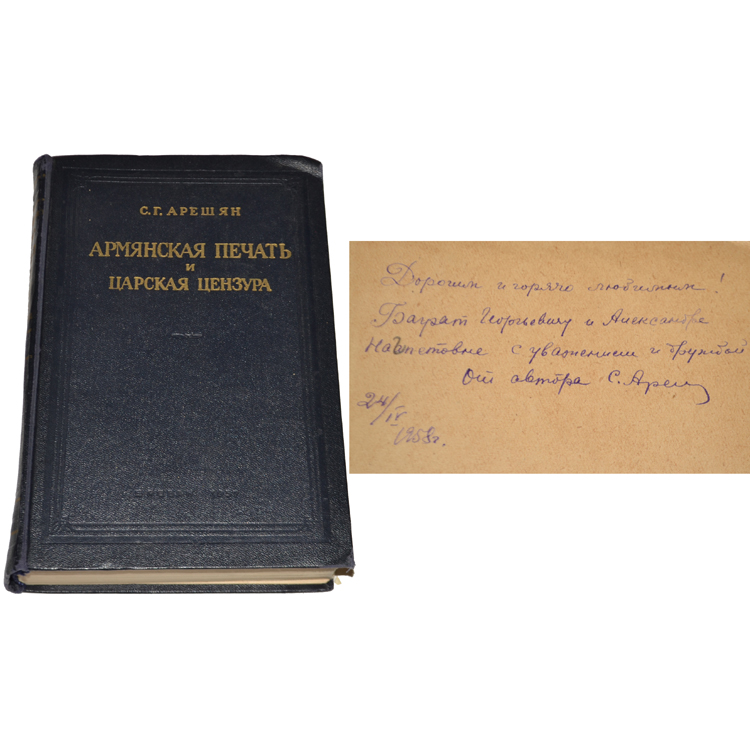 С.Г. АРЕШЯН
АРМЯНСКАЯ ПЕЧАТЬ
И
ЦАРСКАЯ ЦЕНЗУРА
Дорогим и горячо любимым!
Баграт Георгьевичу и Александре
с уважением и дружбой
От автора С. Ареш
24/IV
1958г.